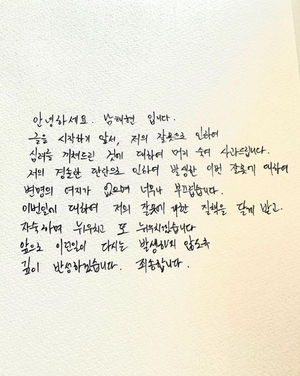 안녕하세요. 남태현 입니다.
글을 시작하기 앞서, 저의 잘못으로 인하여
심려를 끼쳐드린 점에 대하여 머리 숙여 사과드립니다.
저의 경솔한 판단으로 인하여 발생한 이번 잘못에 대하여
변명의 여지가 없으며 너무나 부끄럽습니다.
이번일에 대하여 저의 잘못에 대한 질책을 달게 받고,
자숙하며 뉘우치고 또 뉘우치겠습니다
앞으로 이런일이 다시는 발생하지 않도록
깊이 반성하겠습니다. 죄송합니다.